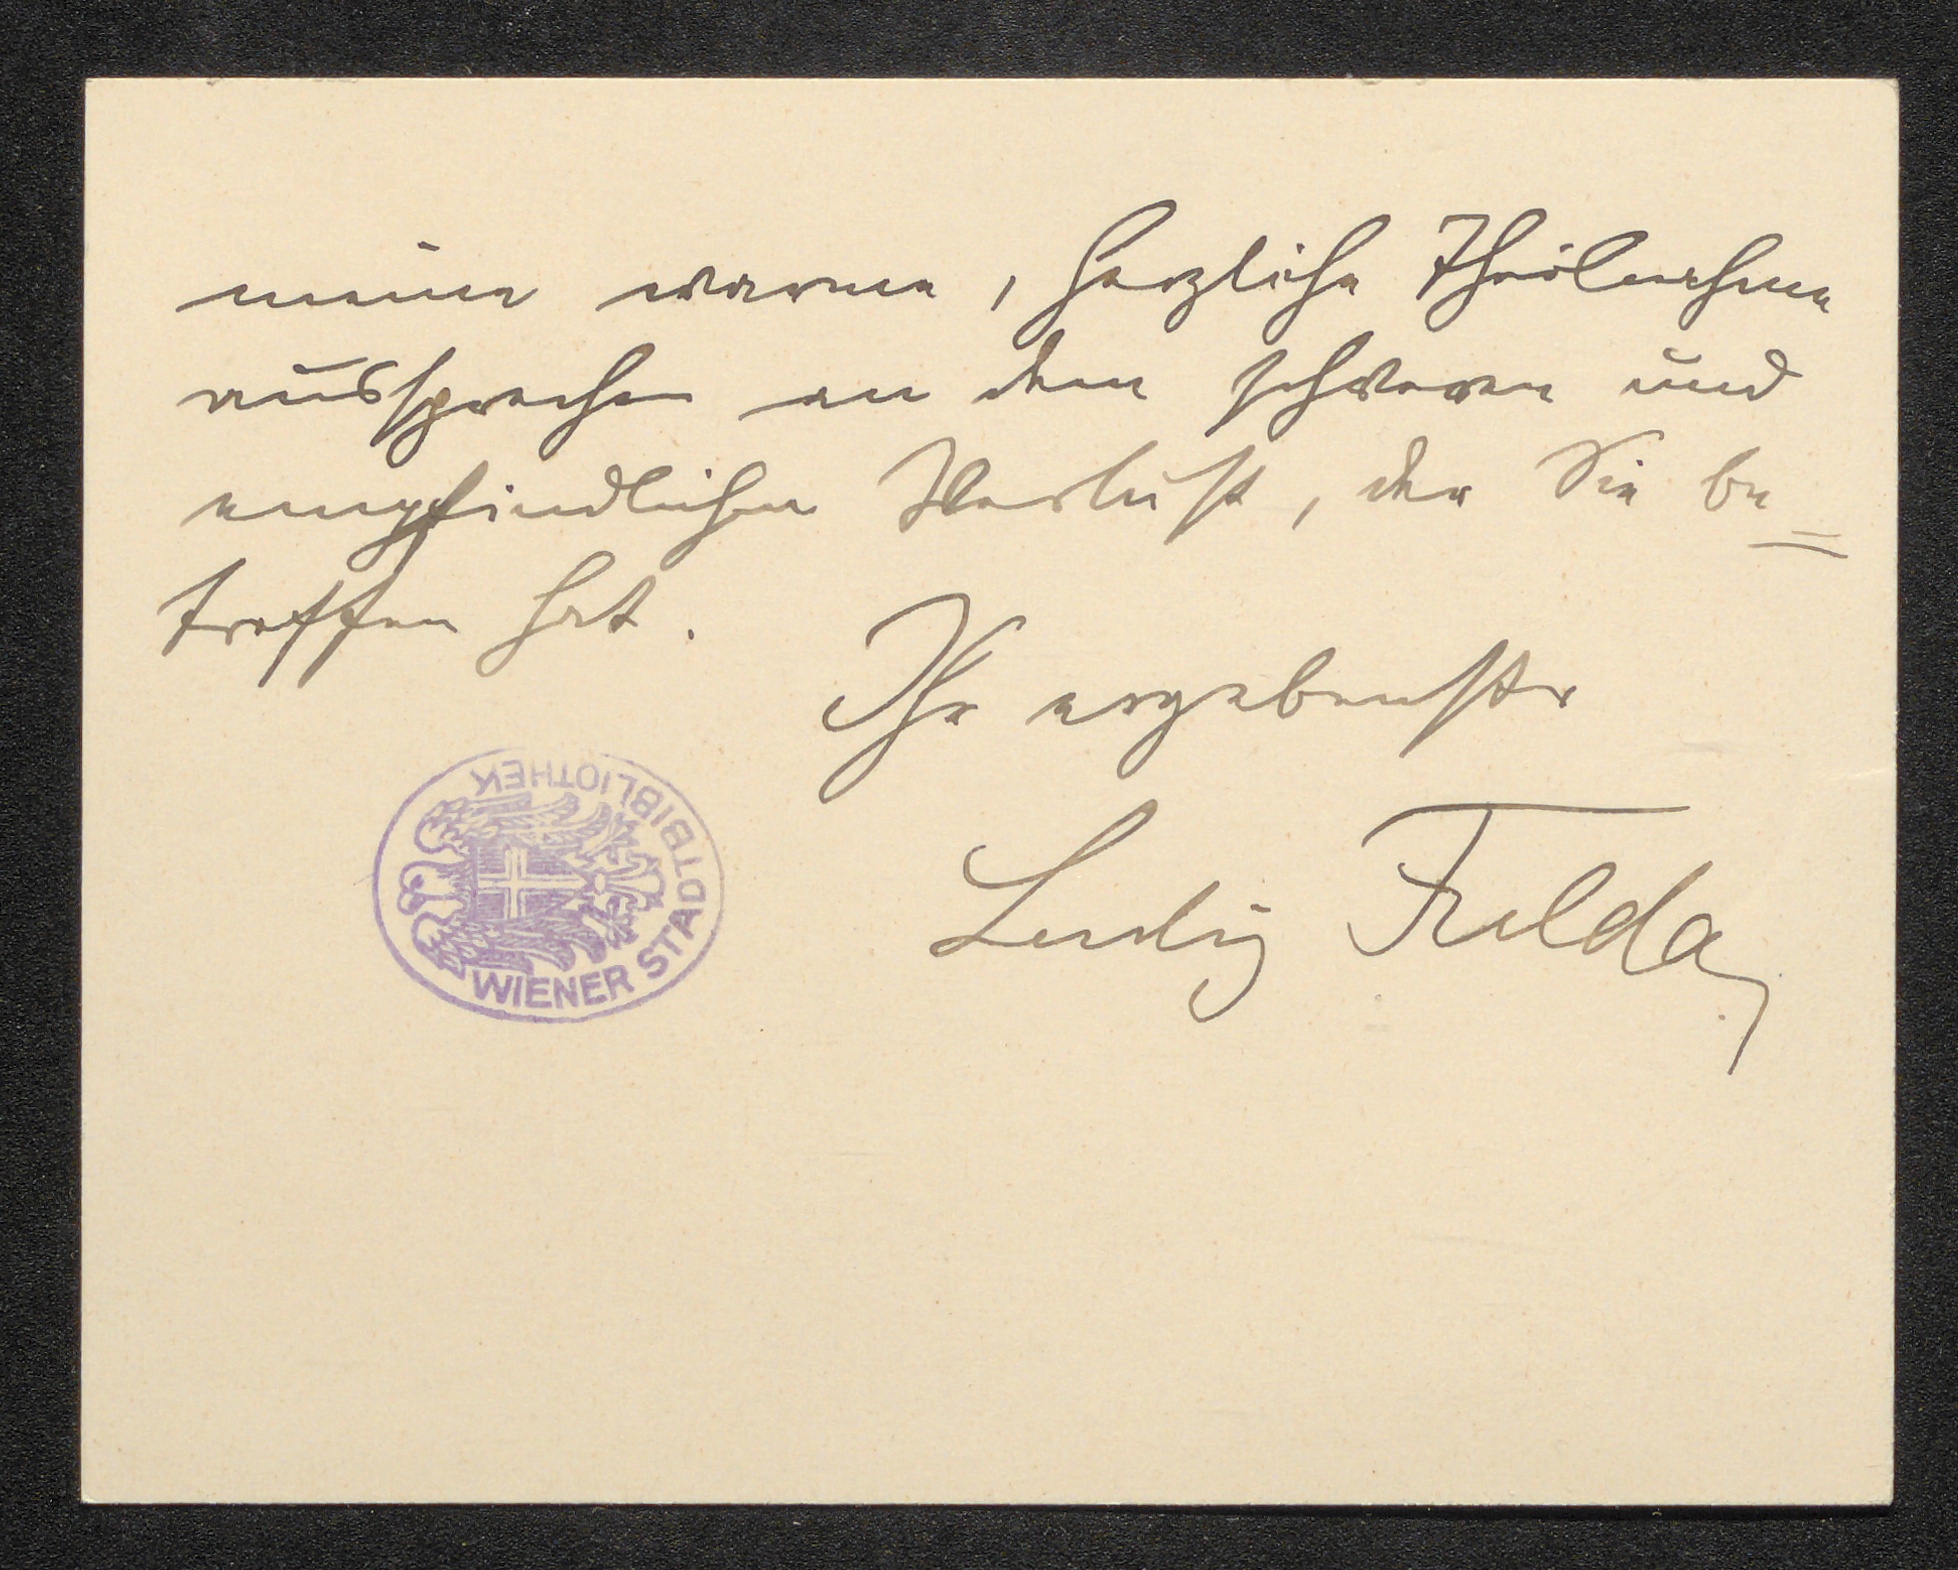 meine warme, herzliche Theilnahme
aussprechen an dem schweren und
empfindlichen Verlust, der Sie be=
troffen hat.
Ihr ergebenster
Ludwig Fulda
WIENER STADTBIBLIOTHEK